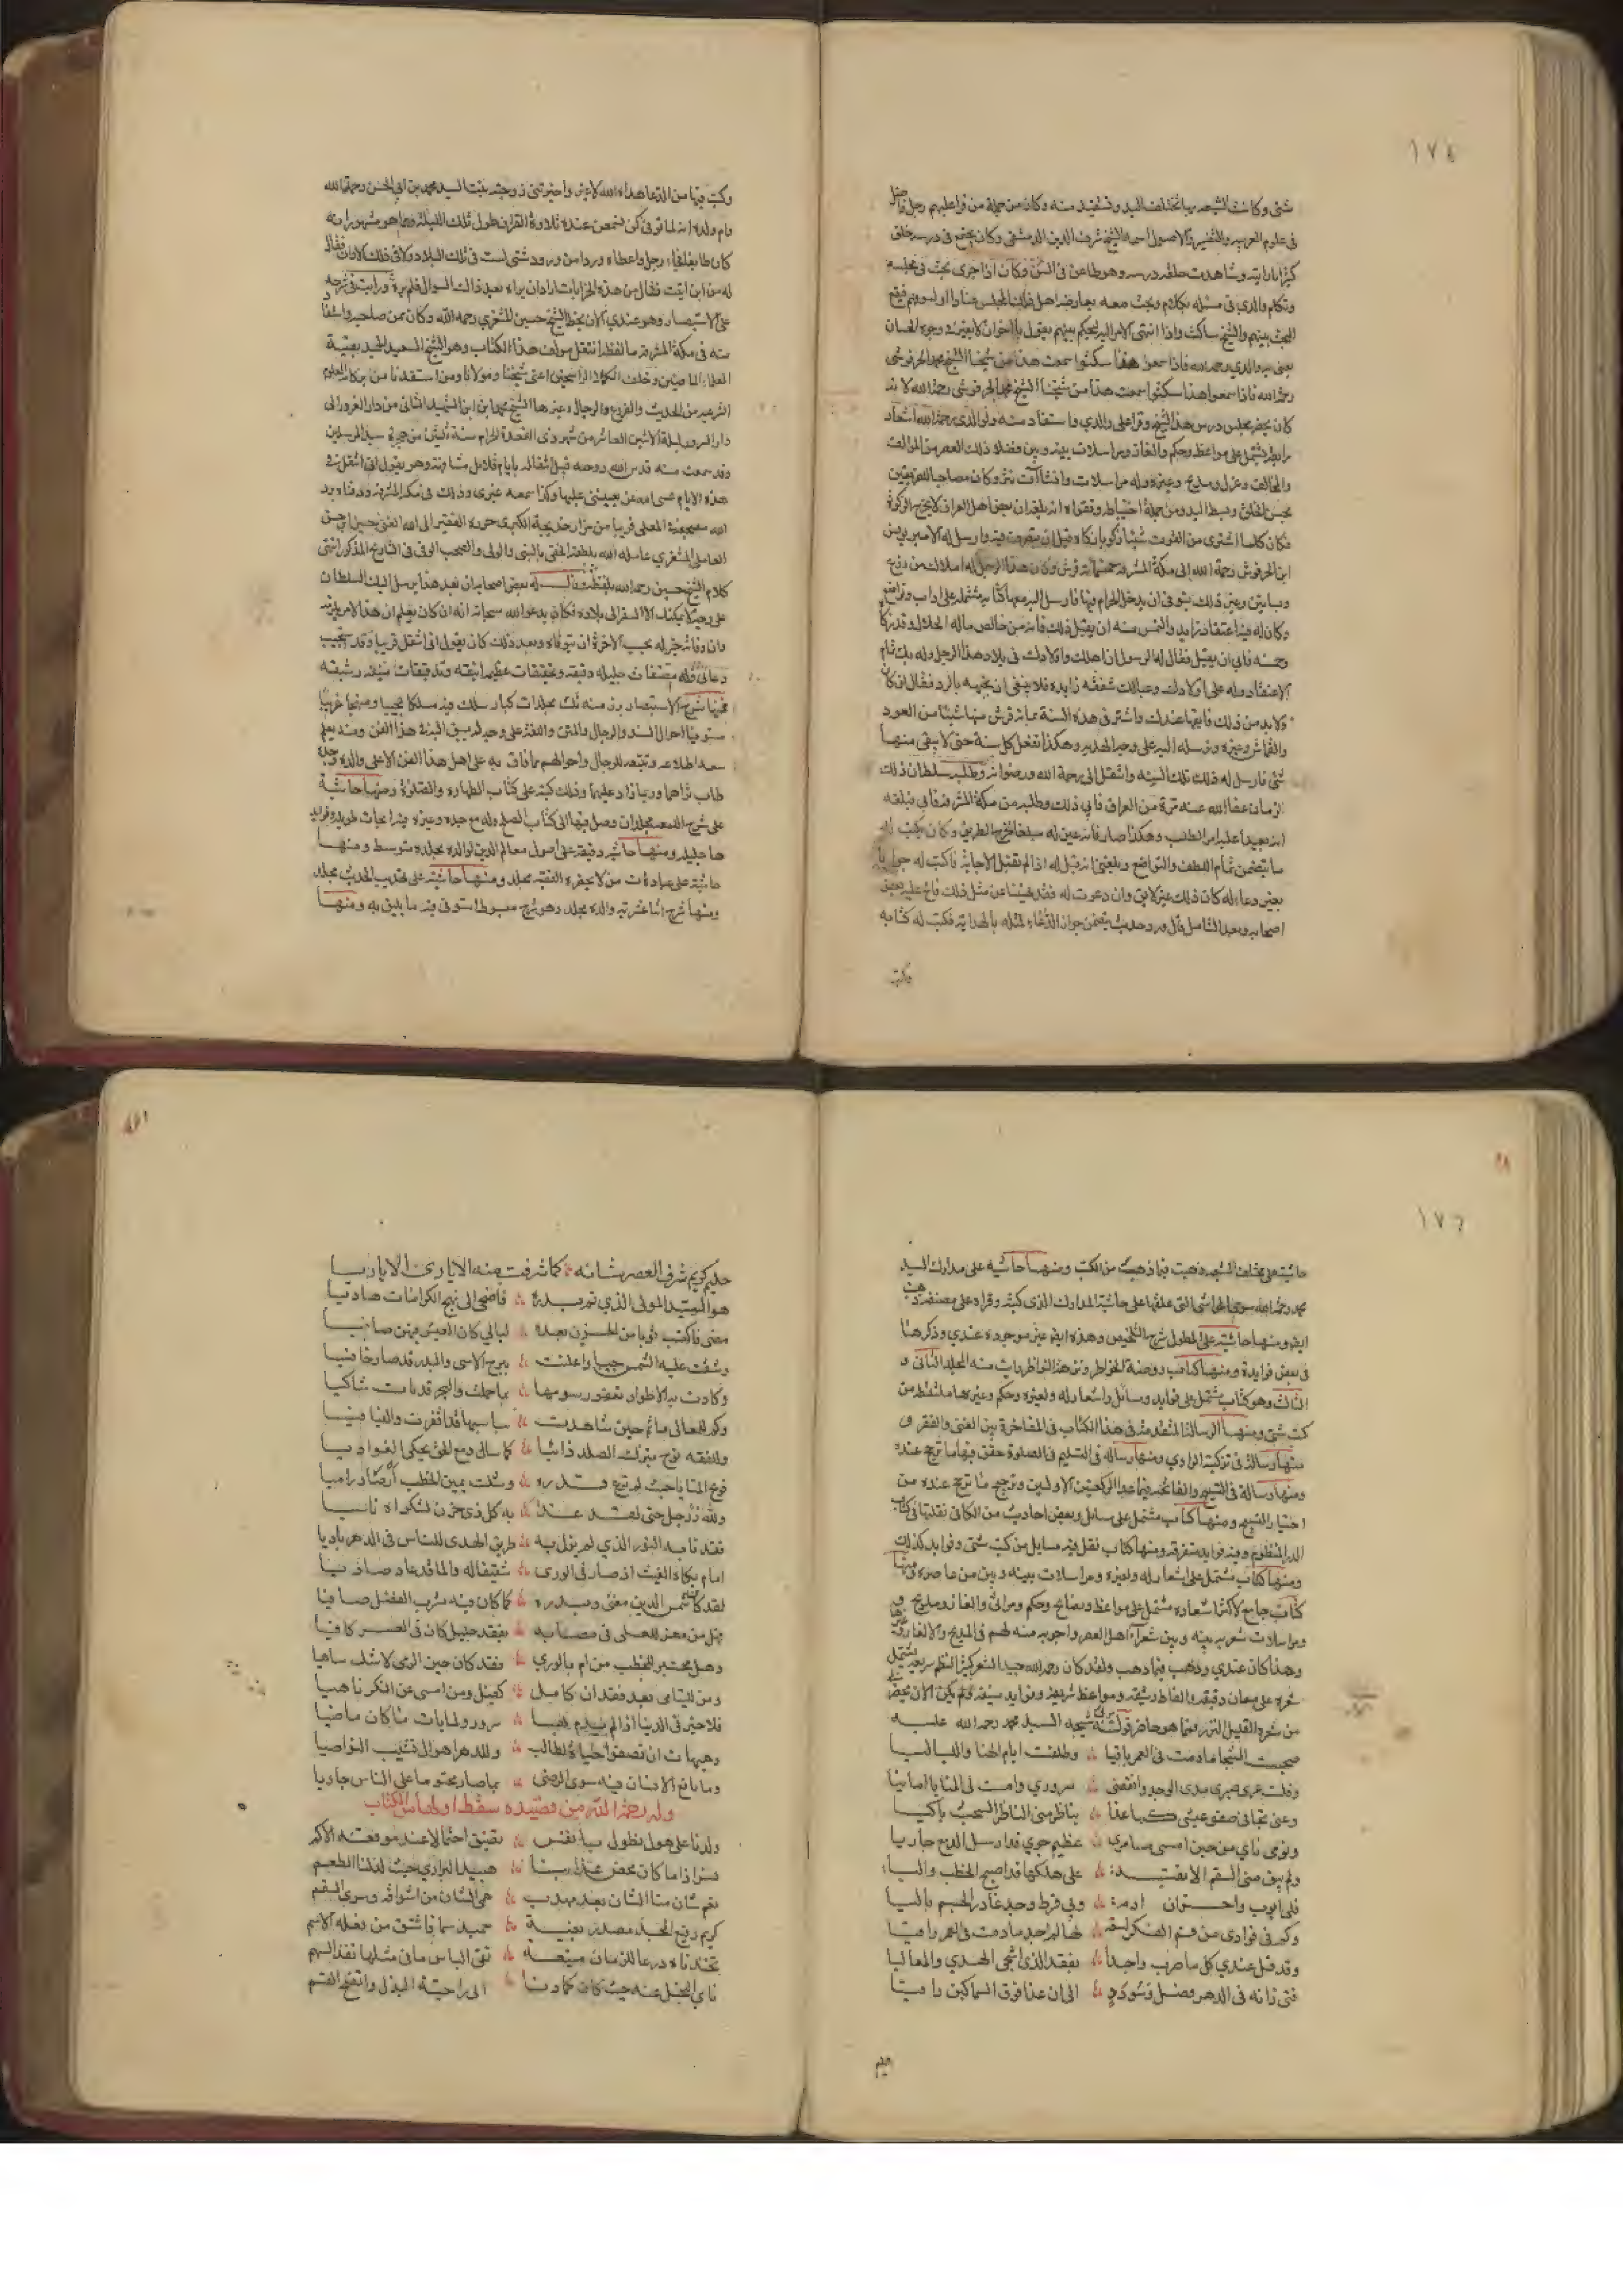 ١٧٤
شتى وكانت الشيعه بها تختلف اليه وتستفيد منه وكان من جملة من قرا عليهم رجل فاضل
في علوم العربيه والتفسير والاصول اسمه الشيخ شرف الدين الدمشقي وكان يجتمع في درسه خلق
كثير انا رايته وشاهدت حلقه درسه وهو طاعن في السن وكان اذا جرى بحث في مجلسه
وتكلم والدي في مسئله بكلام وبحث معه يعارضه اهل ذلك المجلس عنادا او لسوء فهم فيقع
البحث بينهم والشيخ ساكت واذا انتهى الامر اليه ليحكم بينهم يقول يا اخوان لا تعتبوا في وجوه الحسان
يعني به والدي رحمه الله فاذا سمعوا هذا سكتوا سمعت هذا من شيخنا الشيخ محمد الحرفوشي
رحمه الله فاذا سمعوا هذا سكتوا سمعت هذا من شيخنا الشيخ محمد الحرفوشي رحمه الله لانه
كان يحضر مجلس درس هذا الشيخ وقرا على والدي واستفاد منه ولوالدي رحمه الله اشعار
رايقه تشتمل على مواعظ وحكم والغاز ومراسلات بينه وبين فضلا ذلك العصر من الموالف
والمخالف وغزل ومديح وغيره وله مراسلات وانشاآت نثر وكان مصاحبا للفريقين
بحسن الخلق وبسط اليد ومن جملة احتياطه وتقواه انه بلغه ان بعض اهل العراق لا يخرج الزكوة
فكان كلما اشترى من القوت شيئا زكويا زكاه قبل ان يتصرف فيه وارسل له الامير يونس
ابن الحرفوش رحمه الله الى مكة المشرفه خمسمائة قرش وكان هذا الرجل له املاك من زرع
وبساتين وغير ذلك يتوقى ان يدخل الحرام فيها فارسل اليه معها كتابه مشتملا على اداب وتواضع
وكان له فيه اعتقاد زايد والتمس منه ان يقبل ذلك فانه من خالص ماله الحلال وقد زكا
وخمسه فابى ان يقبل فقال له الرسول ان اهلك واولادك في بلاد هذا الرجل وله بك تمام
الاعتقاد وله على اولادك وعيالك شفقه زايده فلا ينبغي ان تجبهه بالرد فقال ان كان
ولا بد من ذلك فابقها عندك واشتر في هذه السنة بماية قرش منها شيئا من العود
والقماش وغيره ونرسله اليه على وجه الهديه وهكذا تفعل كل سنة حتى لا يبقى منها
شئ فارسل له ذلك تلك السنه وانتقل الى رحمة الله ورضوانه وطلبه سلطان ذلك
الزمان عفا الله عنه مرة من العراق فابى ذلك وطلبه من مكة المشرفه فابى فبلغه
انه يعيد عليه امر الطلب وهكذا صار فانه عين له مبلغا لخرج الطريق وكان يكتب له
ما يتضمن تمام اللطف والتواضع وبلغني انه قيل له اذا لم تقبل الاجابة فاكتب له جوابا
بغير دعاء له كان ذلك غير لايق وان دعوت له فقد نهينا عن مثل ذلك فالح عليه بعض
اصحابه وبعد التامل قال ورد حديث يتضمن جواز الدعاء لمثله بالهداية فكتب له كتابه
وكتب
وكتب فيها من الدعا هداه الله لا غير واخبرتني زوجته بنت السيد محمد بن ابي الحسن رحمه الله
وام ولده انه لما توفي كن يسمعن عنده تلاوة القران طول تلك الليلة ومما هو مشهور انه
كان طايفا فجاءه رجل واعطاه وردا من ورود شتى ليست في تلك البلاد ولا في ذلك الاوان فقال
له من اين اتيت فقال من هذه الخرابات ثم اراد ان يراه بعد ذلك السوال فلم يره ورايت في شرحه
على الاستبصار وهو عندي الان بخط الشيخ حسين المشغري رحمه الله وكان ممن صاحبه وانتفع
منه في مكة المشرفه ما لفظه انتقل مولف هذا الكتاب وهو الشيخ السعيد الحميد بقية
العلماء الماضين وخلف الكملاء الراسخين اعني شيخنا ومولانا ومن استفدنا من بركاته العلوم
الشرعيه من الحديث والفروع والرجال وغيرها الشيخ محمد ابن ابن الشهيد الثاني من دار الغرور الى
دار السرور ليلة الاثنين العاشر من شهر ذي القعدة الحرام سنة ثلثين من هجرة سيد المرسلين
وقد سمعت منه قدس الله روحه قبيل انتقاله بايام قلائل مشافهة وهو يقول اني انتقل في
هذه الايام عسى الله ان يعينني عليها وكذا سمعه غيري وذلك في مكة المشرفه ودفناه برد
الله مضجعه في المعلى قريبا من مزار خديجة الكبرى حرره الفقير الى الله الغني حسين بن حسن
العاملي المشغري عامله الله بلطفه الخفي بالنبي والولي والصحب الوفي في التاريخ المذكور انتهى
كلام الشيخ حسين رحمه الله بلفظه قال له بعض اصحابه ان بعد هذا يرسل اليك السلطان
على وجه لا يمكنك الا السفر الى بلاده فكان يدعو الله سبحانه انه ان كان يعلم ان هذا الامر
يحب الاخرة ان يتوفاه وبعد ذلك كان يقول اني انتقل قريبا وقد استجيب
دعائي وله مصنفات جليله دقيقه وتحقيقات عظيمه انيقه وتدقيقات منيفه رشيقه
فمنها شرح الاستبصار برز منه ثلث مجلدات كبار سلك فيه مسلكا عجيبا ومنهجا غريبا
مستوفيا احوال السند والرجال والمتن واللغة على وجه لم يسبق اليه في هذا الفن ومنه يعلم
سعه اطلاعه وتتبعه للرجال واحوالهم مما فاق به على اهل هذا الفن الاعلى والده وجده
طاب ثراهما وربما زاد عليهما وذلك كتبه على كتاب الطهارة والصلوة ومنها حاشية
على شرح اللمعه مجلدات وصل فيها الى كتاب الصلح وله مع جده وغيره فيه ابحاث طويله وفوايد
جليله ومنها حاشيه دقيقه على اصول معالم الدين لوالده مجلده متوسط ومنها
حاشية على عبادات من لا يحضره الفقيه مجلد ومنها حاشية على تهذيب الحديث مجلد
ومنها شرح اثنا عشرية والده مجلد وهو شرح مبسوط استوفى فيه ما يليق به ومنها
١٧٦
حاشية على مختلف الشيعه ذهبت فيما ذهب من الكتب ومنها حاشيه على مدارك السيد
محمد رحمه الله سوى الحواشي التي علقها على حاشية المدارك الذي كتبه وقراه على مصنفه ذهبت
ايضا ومنها حاشيه على المطول شرح التلخيص وهذه ايضا غير موجوده عندي وذكرها
في بعض فوايده ومنها كتاب روضة الخواطر ونزهة النواظر رايت منه المجلد الثاني و
الثالث وهو كتاب يشتمل على فوايد ومسائل واشعار له ولغيره وحكم وغيرها ملتقط من
كتب شتى ومنها الرسالة المتقدمة في هذا الكتاب في المفاخرة بين الغنى والفقر و
منها رسالة في تزكية الراوي ومنها رساله في التسليم في الصلوة حقق فيها ما ترجح عنده
ومنها رسالة في التسبيح والفاتحه فيما عدا الركعتين الاولتين وترجيح ما ترجح عنده من
اختيار التسبيح ومنها كتاب مشتمل على مسائل وبعض احاديث من الكافي نقلتها في كتاب
الدر المنظوم وفيه فوايد متفرقه ومنها كتاب نقل فيه مسايل من كتب شتى وفوايد كذلك
ومنها كتاب مشتمل على اشعار له ولغيره ومراسلات بينه وبين من عاصره ومنها
كتاب جامع لاكثر اشعاره مشتمل على مواعظ ونصائح وحكم ومراثي والغاز ومديح
ومراسلات شعريه بينه وبين شعراء اهل العصر واجوبه منه لهم في المديح والالغاز
وهذا كان عندي وذهب فيما ذهب ولقد كان رحمه الله جيد الشعر كثير النظم سريعه يشتمل
شعره على معان دقيقه والفاظ رشيقه ومواعظ شريفه وفوايد منيفه ولم يكن الان يحضرني
من شعره القليل النزر فمما هو حاضر قوله يرثي شيخه السيد محمد رحمه الله عليه
صحبت الشجا ما دمت في العمر باقيا وطلقت ايام الهنا واللياليا
وفلت عرى صبري مدى الوجد وانقضى سروري وامست في المنايا امانيا
وعن تجافى صفو عيشي كما غدا يناظر مني الناظر السحب باكيا
ونومي ناي من حين امسى مسامري عظيم جوى قد ارسل الدمع جاريا
ولم يبق مني السقم الا بقية على هلكها قد اصبح الخطب واليا
وبي فرط وجد غادر الجسم باليا
وكم في فوادي من لها لم اجد ما دمت في العمر راقيا
وقد قل عندي كل ما صرت واجدا بفقد الذي اشجى الهدى والمعاليا
فتى زانه في الدهر فضل وسودد الى ان غدا فوق السماكين راقيا
حليم
١٧٧
حليم كريم شرف العصر شانه كما شرفت منه الايادي الاياديا
هو السيد المولى الذي تم بدره فاضحى الى نهج الكرامات هاديا
مضى فاكتسبت ثوبا من الحزن بعده ليالي كان العيش فيهن صافيا
وشقت عليه الشمس جيبا واعلنت ببرح الاسى والبدر قد صار خافيا
وكادت به الاطواد تعفو رسومها بما حملت والبحر قد بات شاكيا
وكم للمعالي ماتم حين شاهدت سباسبها قد اقفرت والفيافيا
وللفقه نوح يترك الصلد ذائبا كما سال دمع الحزن يحكي الغواديا
فويح المنايا حيث لم ترع قدره وشلت يمين الخطب اذ صار راميا
ولله رزء جل حتى لقد غدا به كل ذي حزن لشكواه ناسيا
فقد نابه النور الذي لم يزل به طريق الهدى للناس في الدهر باديا
امام بكاه الغيث اذ صار في الورى شقيقا له والماء قد عاد صافيا
لقد كان شمس الدين معنى وبدره كما كان فيه شرب الفضل صافيا
فهل من معز للعلى في مصابه بفقد جليل كان في العسر كافيا
وهل مخبر للخطب من ام بالورى فقد كان حين الرمي لا شك ساهيا
ومن لليتامى بعد فقدان كامل كفيل ومن امسى عن النكر ناهيا
فلا خير في الدنيا اذا لم يدم بها سرور ولما بات ما كان ماضيا
وهيهات ان تصفو الحياة لطالب وللدهر اهوال تشيب النواصيا
وما يانع الانسان فيه سوى الرضى بما صار محتوما على الناس جاريا
وله رحمه الله من قصيده سقط اولها من الكتاب
ولدنا على هول نطول بانفس تضيق احتمالا عند موقعه الاكم
نعم شان منا الشان بعد مهذب هي الشان من اشواقه وسرى السقم
كريم رفيع الجد مصدر بغية حميد سما فاشتق من فعله الاسم
تخذناه درعا للزمان منيعة تقي الباس ما في مثلها نفذ السهم
ناي البخل عنه حيث كان كما دنا الى راحتيه البذل واتضح القسم